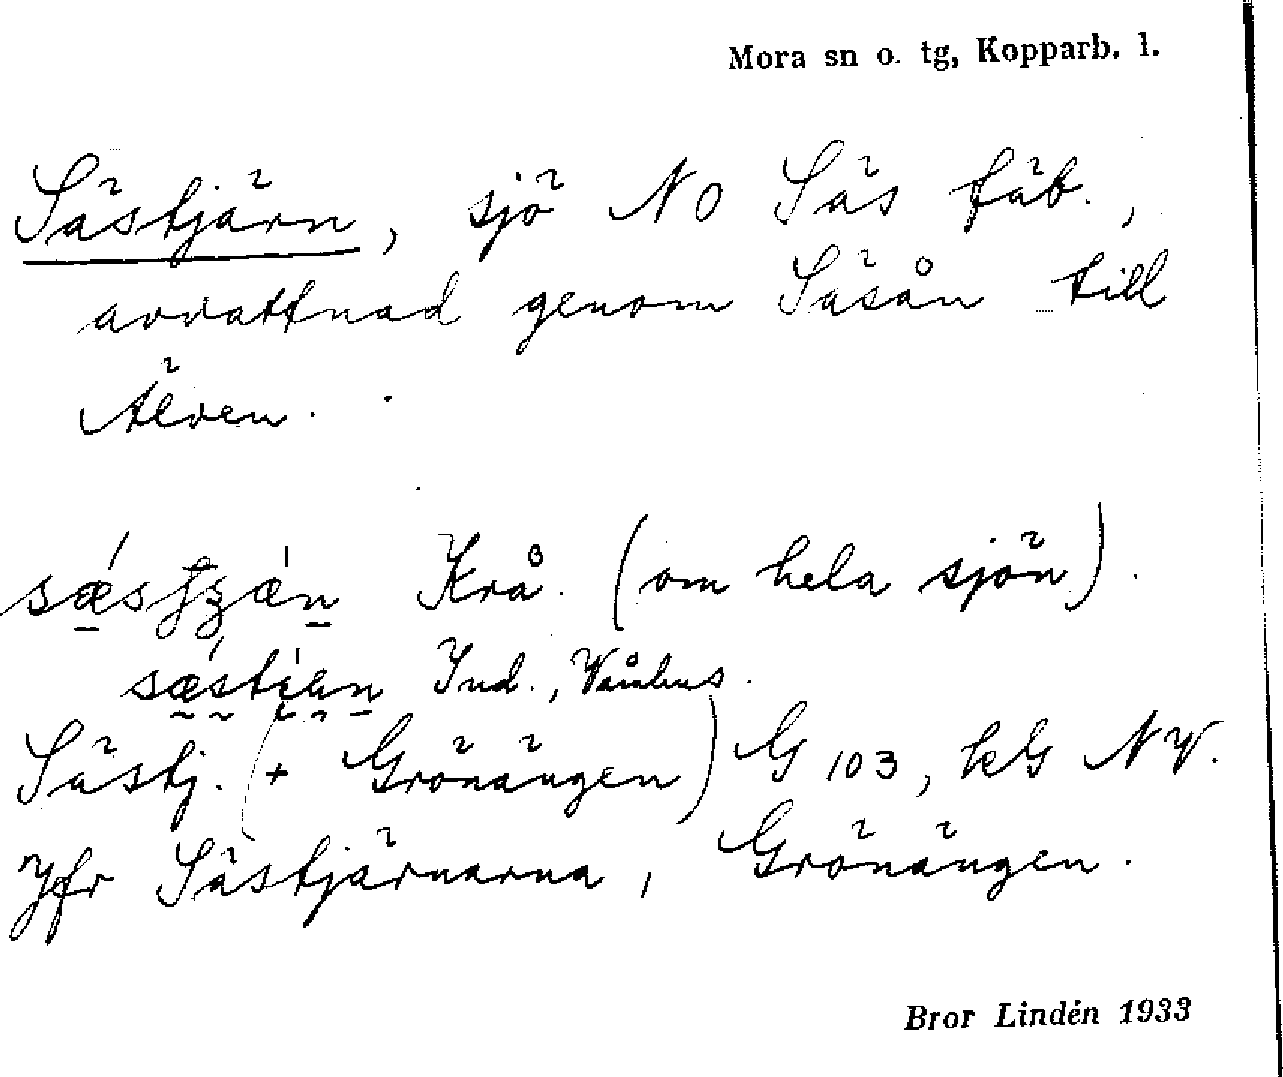 Mora sn o. tg, Kopparb. l.
Sästjärn, sjö NO Säs fäb.,
avvattnad genom Säsån till
Älven.
Krå. (om hela sjön).
Ind., Våmhus.
Sästj. (+ Grönängen) G 103, kG NV.
Jfr Sästjärnarna, Grönängen.
Bror Lindén 1933